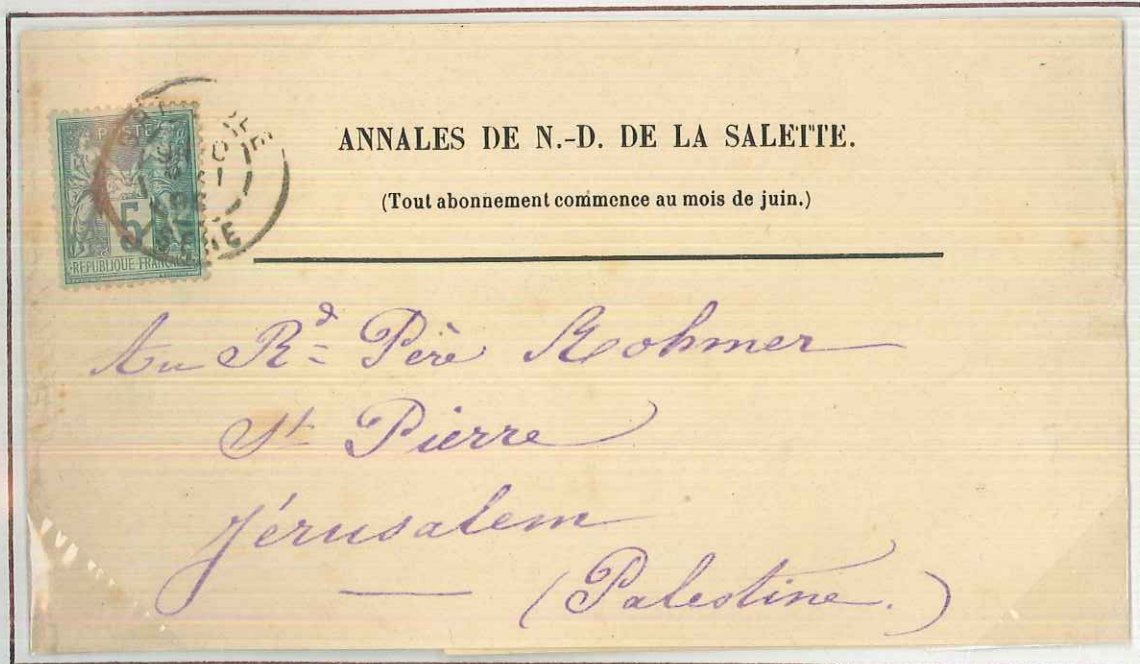 POSTE
5
REPUBLIQUE FRANCAISE
ANNALES DE N.-D. DE LA SALETTE.
(Tout abonnement commence au mois de juin.)
Au Rd Père Rohmer
St Pierre
Jérusalem
(Palestine.)